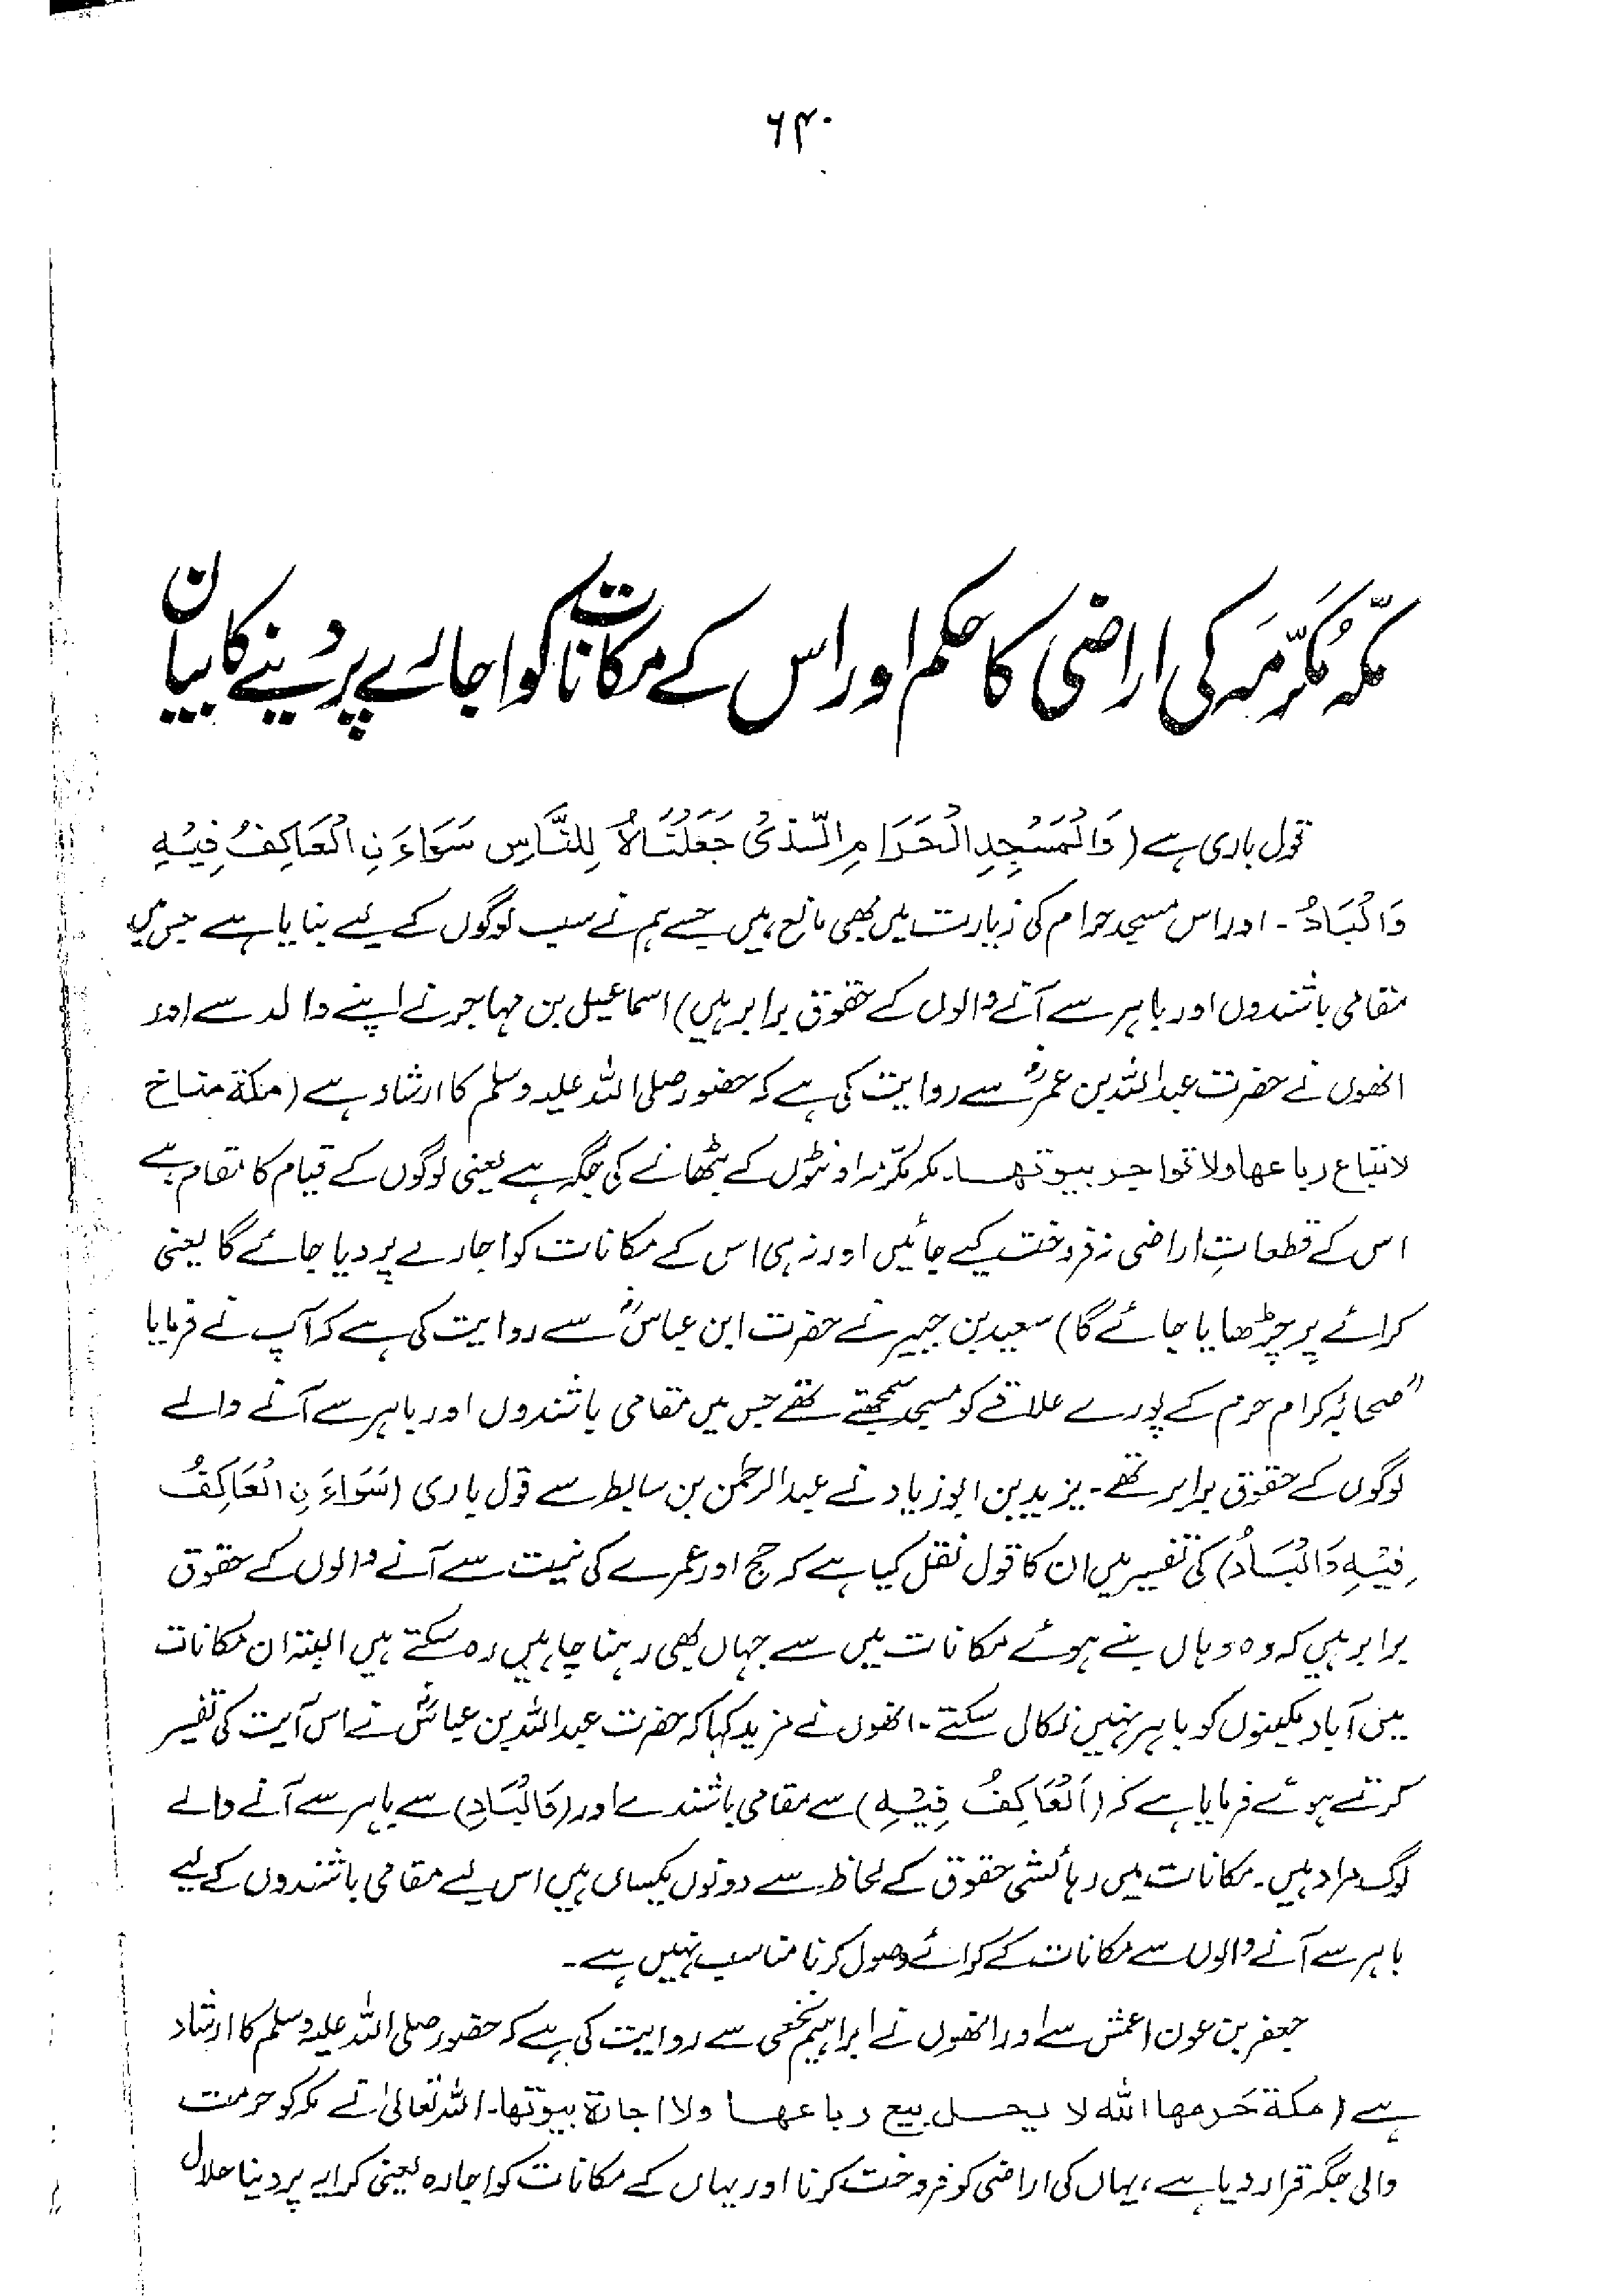 ۶۴۰
مکّہ مُکرّمَہ کی اراضی کا حکم اور اس کے مکانات کو اجارے پر دینے کا بیان
قول باری ہے (وَالْمَسْجِدِ الْحَرَامِ الَّذِیْ جَعَلْنَاہُ لِلنَّاسِ سَوَاءَ نِ الْعَاکِفُ فِیْہِ
وَالْبَادُ ۔ اور اس مسجد حرام کی زیارت میں بھی مانع ہیں جسے ہم نے سب لوگوں کے لیے بنایا ہے جس میں
مقامی باشندوں اور باہر سے آنے والوں کے حقوق برابر ہیں) اسماعیل بن مہاجر نے اپنے والد سے اور
انھوں نے حضرت عبداللہ بن عمرؓ سے روایت کی ہے کہ حضور صلی اللہ علیہ وسلم کا ارشاد ہے (مکة مناخ
لا تباع رباعھا ولا تواجر بیوتھا۔ مکہ مکرّمہ اونٹوں کے بٹھانے کی جگہ ہے یعنی لوگوں کے قیام کا مقام ہے
اس کے قطعاتِ اراضی نہ فروخت کیے جائیں اور نہ ہی اس کے مکانات کو اجارے پر دیا جائے گا یعنی
کرائے پر چڑھایا جائے گا) سعید بن جبیر نے حضرت ابن عباسؓ سے روایت کی ہے کہ آپ نے فرمایا
”صحابۂ کرام حرم کے پورے علاقے کو مسجد سمجھتے تھے جس میں مقامی باشندوں اور باہر سے آنے والے
لوگوں کے حقوق برابر تھے۔ یزید بن ابوزیاد نے عبدالرحمٰن بن سابط سے قول باری (سَوَاءَ نِ الْعَاکِفُ
فِیْہِ وَالْبَادُ) کی تفسیر میں ان کا قول نقل کیا ہے کہ حج اور عمرے کی نیت سے آنے والوں کے حقوق
برابر ہیں کہ وہ وہاں بنے ہوئے مکانات میں سے جہاں بھی رہنا چاہیں رہ سکتے ہیں البتہ ان مکانات
میں آباد مکینوں کو باہر نہیں نکال سکتے۔ انھوں نے مزید کہا کہ حضرت عبداللہ بن عباسؓ نے اس آیت کی تفسیر
کرتے ہوئے فرمایا ہے کہ (اَلْعَاکِفُ فِیْہِ) سے مقامی باشندے اور (وَالْبَادِ) سے باہر سے آنے والے
لوگ مراد ہیں۔ مکانات میں رہائشی حقوق کے لحاظ سے دونوں یکساں ہیں اس لیے مقامی باشندوں کے لیے
باہر سے آنے والوں سے مکانات کے کرائے وصول کرنا مناسب نہیں ہے۔
جعفر بن عون اعمش سے اور انھوں نے ابراہیم نخعی سے روایت کی ہے کہ حضور صلی اللہ علیہ وسلم کا ارشاد
ہے (مکة حَرمھا اللہ لا یحل بیع رباعھا ولا اجارة بیوتھا۔ اللہ تعالیٰ نے مکہ کو حرمت
والی جگہ قرار دیا ہے، یہاں کی اراضی کو فروخت کرنا اور یہاں کے مکانات کو اجارہ یعنی کرایے پر دینا حلال